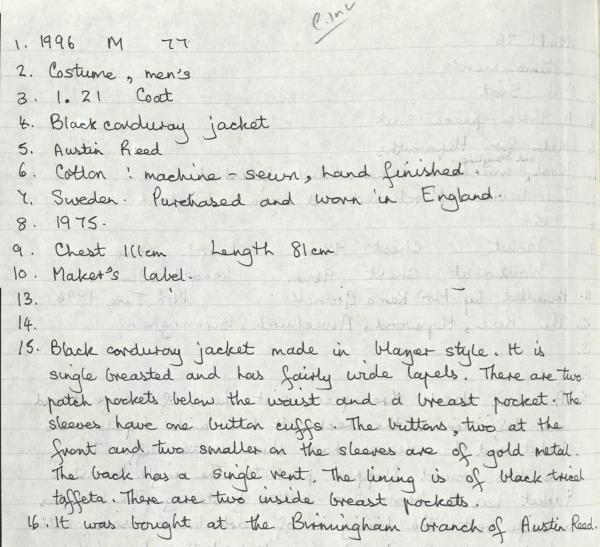 P. Inv
1. 1996 M 77
2. Costume, men's
3. 1.21 Coat
4. Black corduray jacket
5. Austin Reed
6. Cotton : machine - sewn, hand finished.
7. Sweden. Purchased and worn in England.
8. 1975.
9. Chest 111cm Length 81cm
10. Maker's label.
13.
14.
15. Black corduray jacket made in blazer style. It is
single breasted and has fairly wide lapels. There are two
patch pockets below the waist and a breast pocket. The
sleeves have one button cuffs. The buttons, two at the
front and two smaller on the sleeves are of gold metal.
The back has a single vent. The lining is of black tricel
taffeta. There are two inside breast pockets.
16. It was bought at the Birmingham branch of Austin Reed.